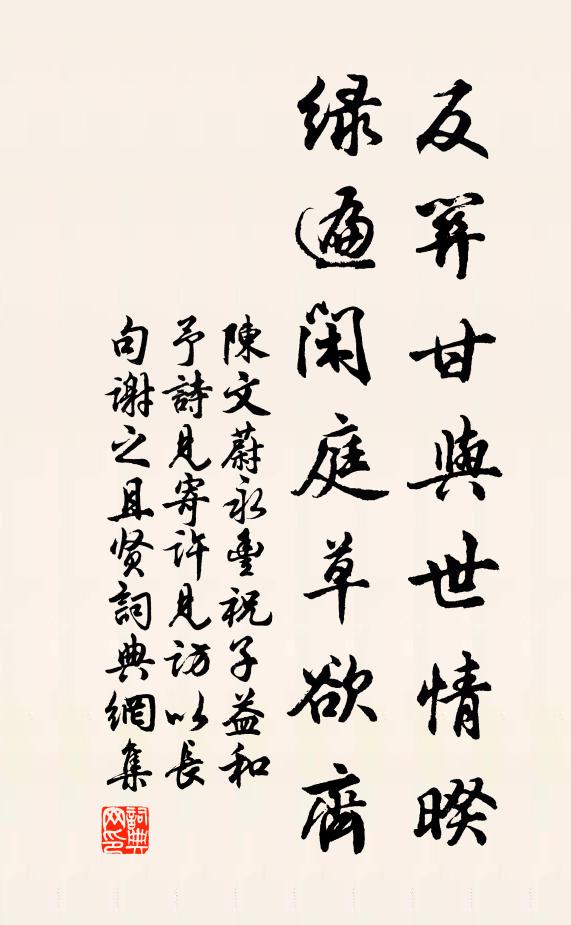 反關甘與世情暌
綠遍閑庭草欲齊
陳文蔚永豐祝子益和
予詩見寄許見訪以長
句謝之且贤詞典網集
詞典网印